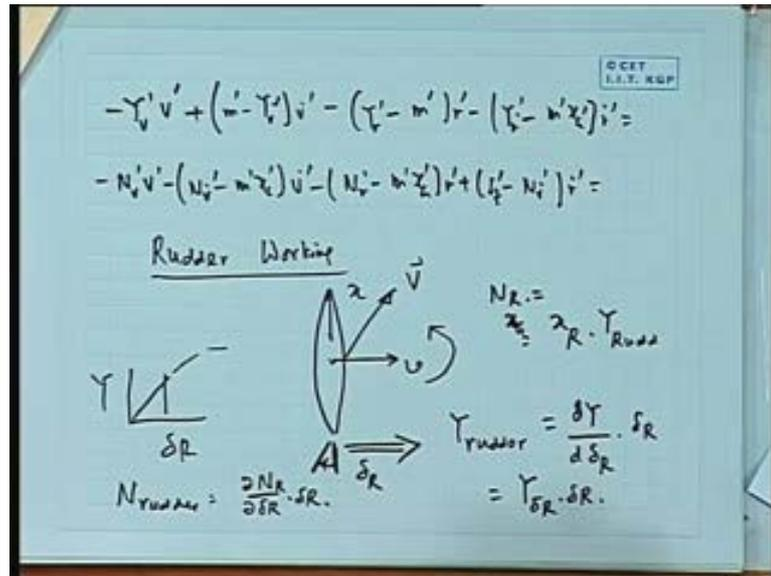 © CET
I.I.T. KGP
-Yv'v' + (m' - Yv̇')v̇' - (Yr' - m')r' - (Yṙ' - m'xG')ṙ' =
-Nv'v' - (Nv̇' - m'xG')v̇' - (Nr' - m'xG')r' + (Iz' - Nṙ')ṙ' =
Rudder Working
x
V⃗
NR. =
xR. YRudd
υ
Y
δR
δR
Yrudder = δY/dδR . δR
Nrudder = ∂NR/∂δR . δR.
= YδR. δR.